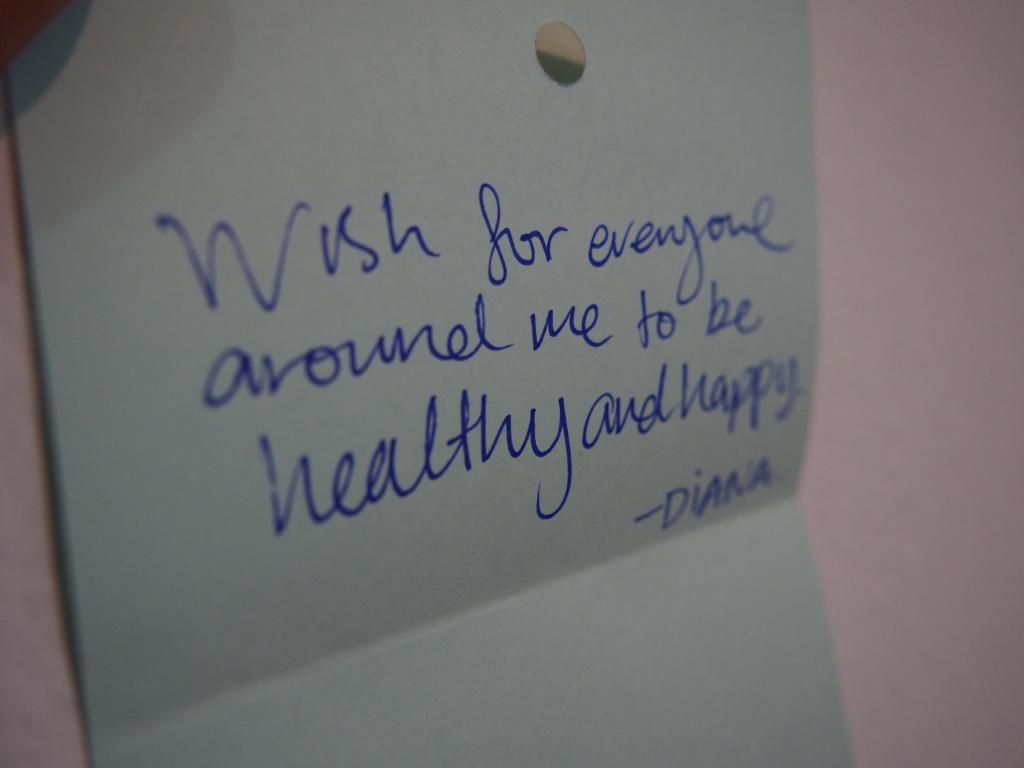 Wish for everyone
around me to be
healthy and happy.
-DiANA.